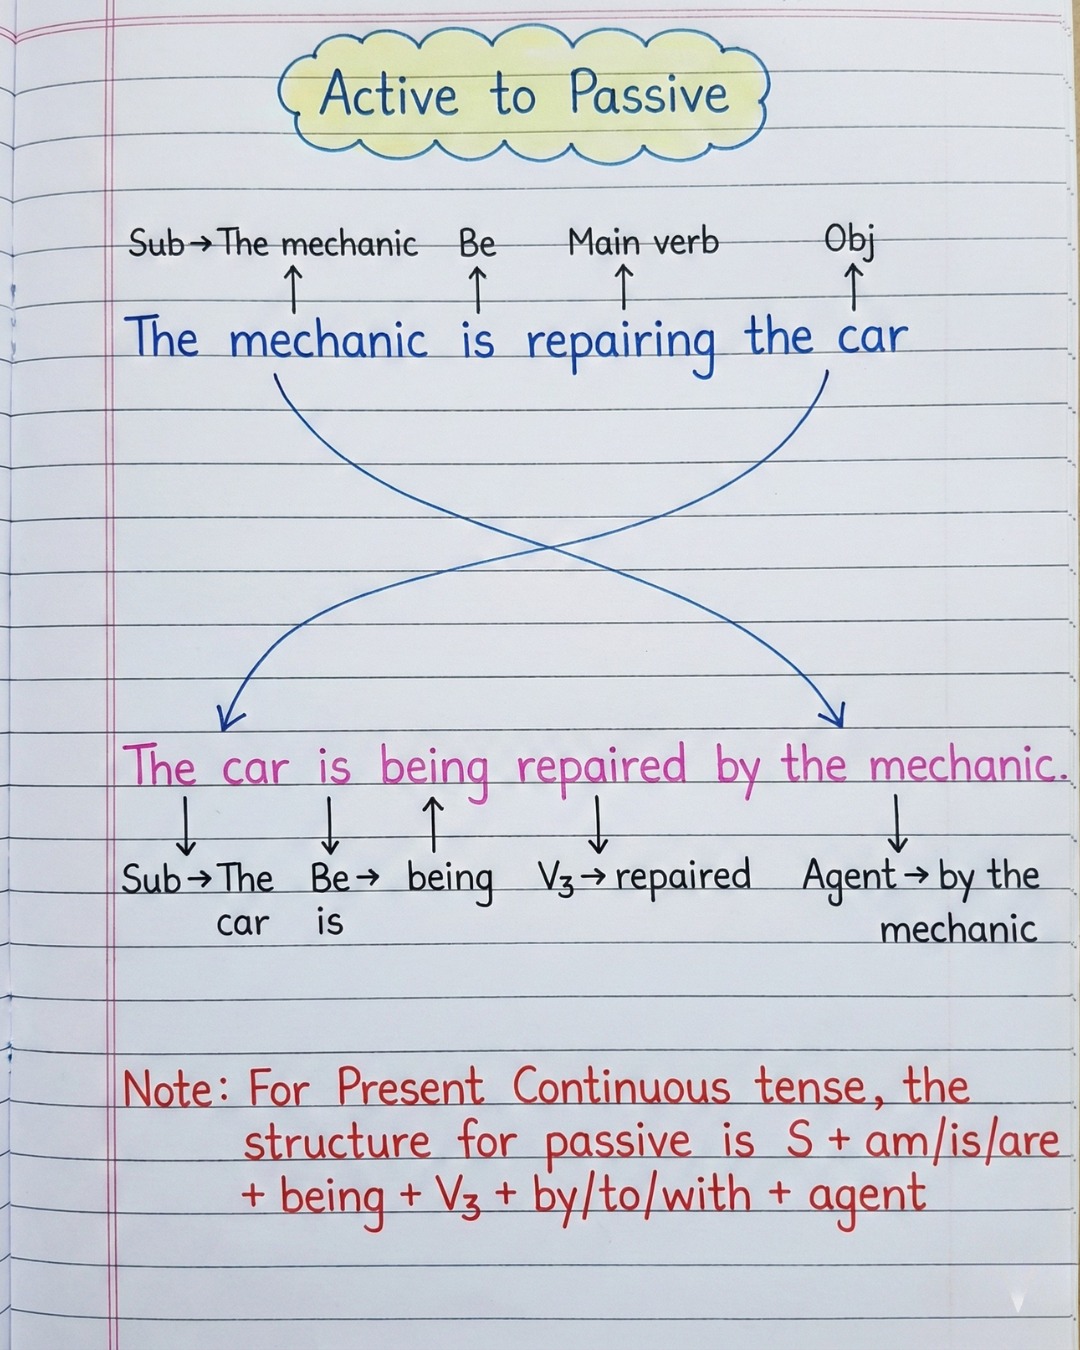 Active to Passive
Sub→The mechanic Be Main verb Obj
The mechanic is repairing the car
The car is being repaired by the mechanic.
Sub→The Be→ being V₃→repaired Agent→by the
car is mechanic
Note: For Present Continuous tense, the
structure for passive is S + am/is/are
+ being + V₃ + by/to/with + agent